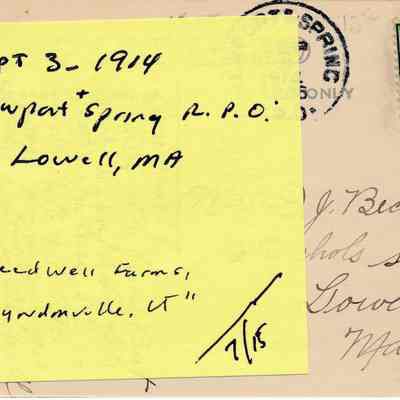 PT 3 - 1914
wport + Spring R.P.O.
Lowell, MA
eedwell Farms,
yndonville, VT"
7/15
SPRING
ONLY
J. Bec
hols s
Lowe
Ma